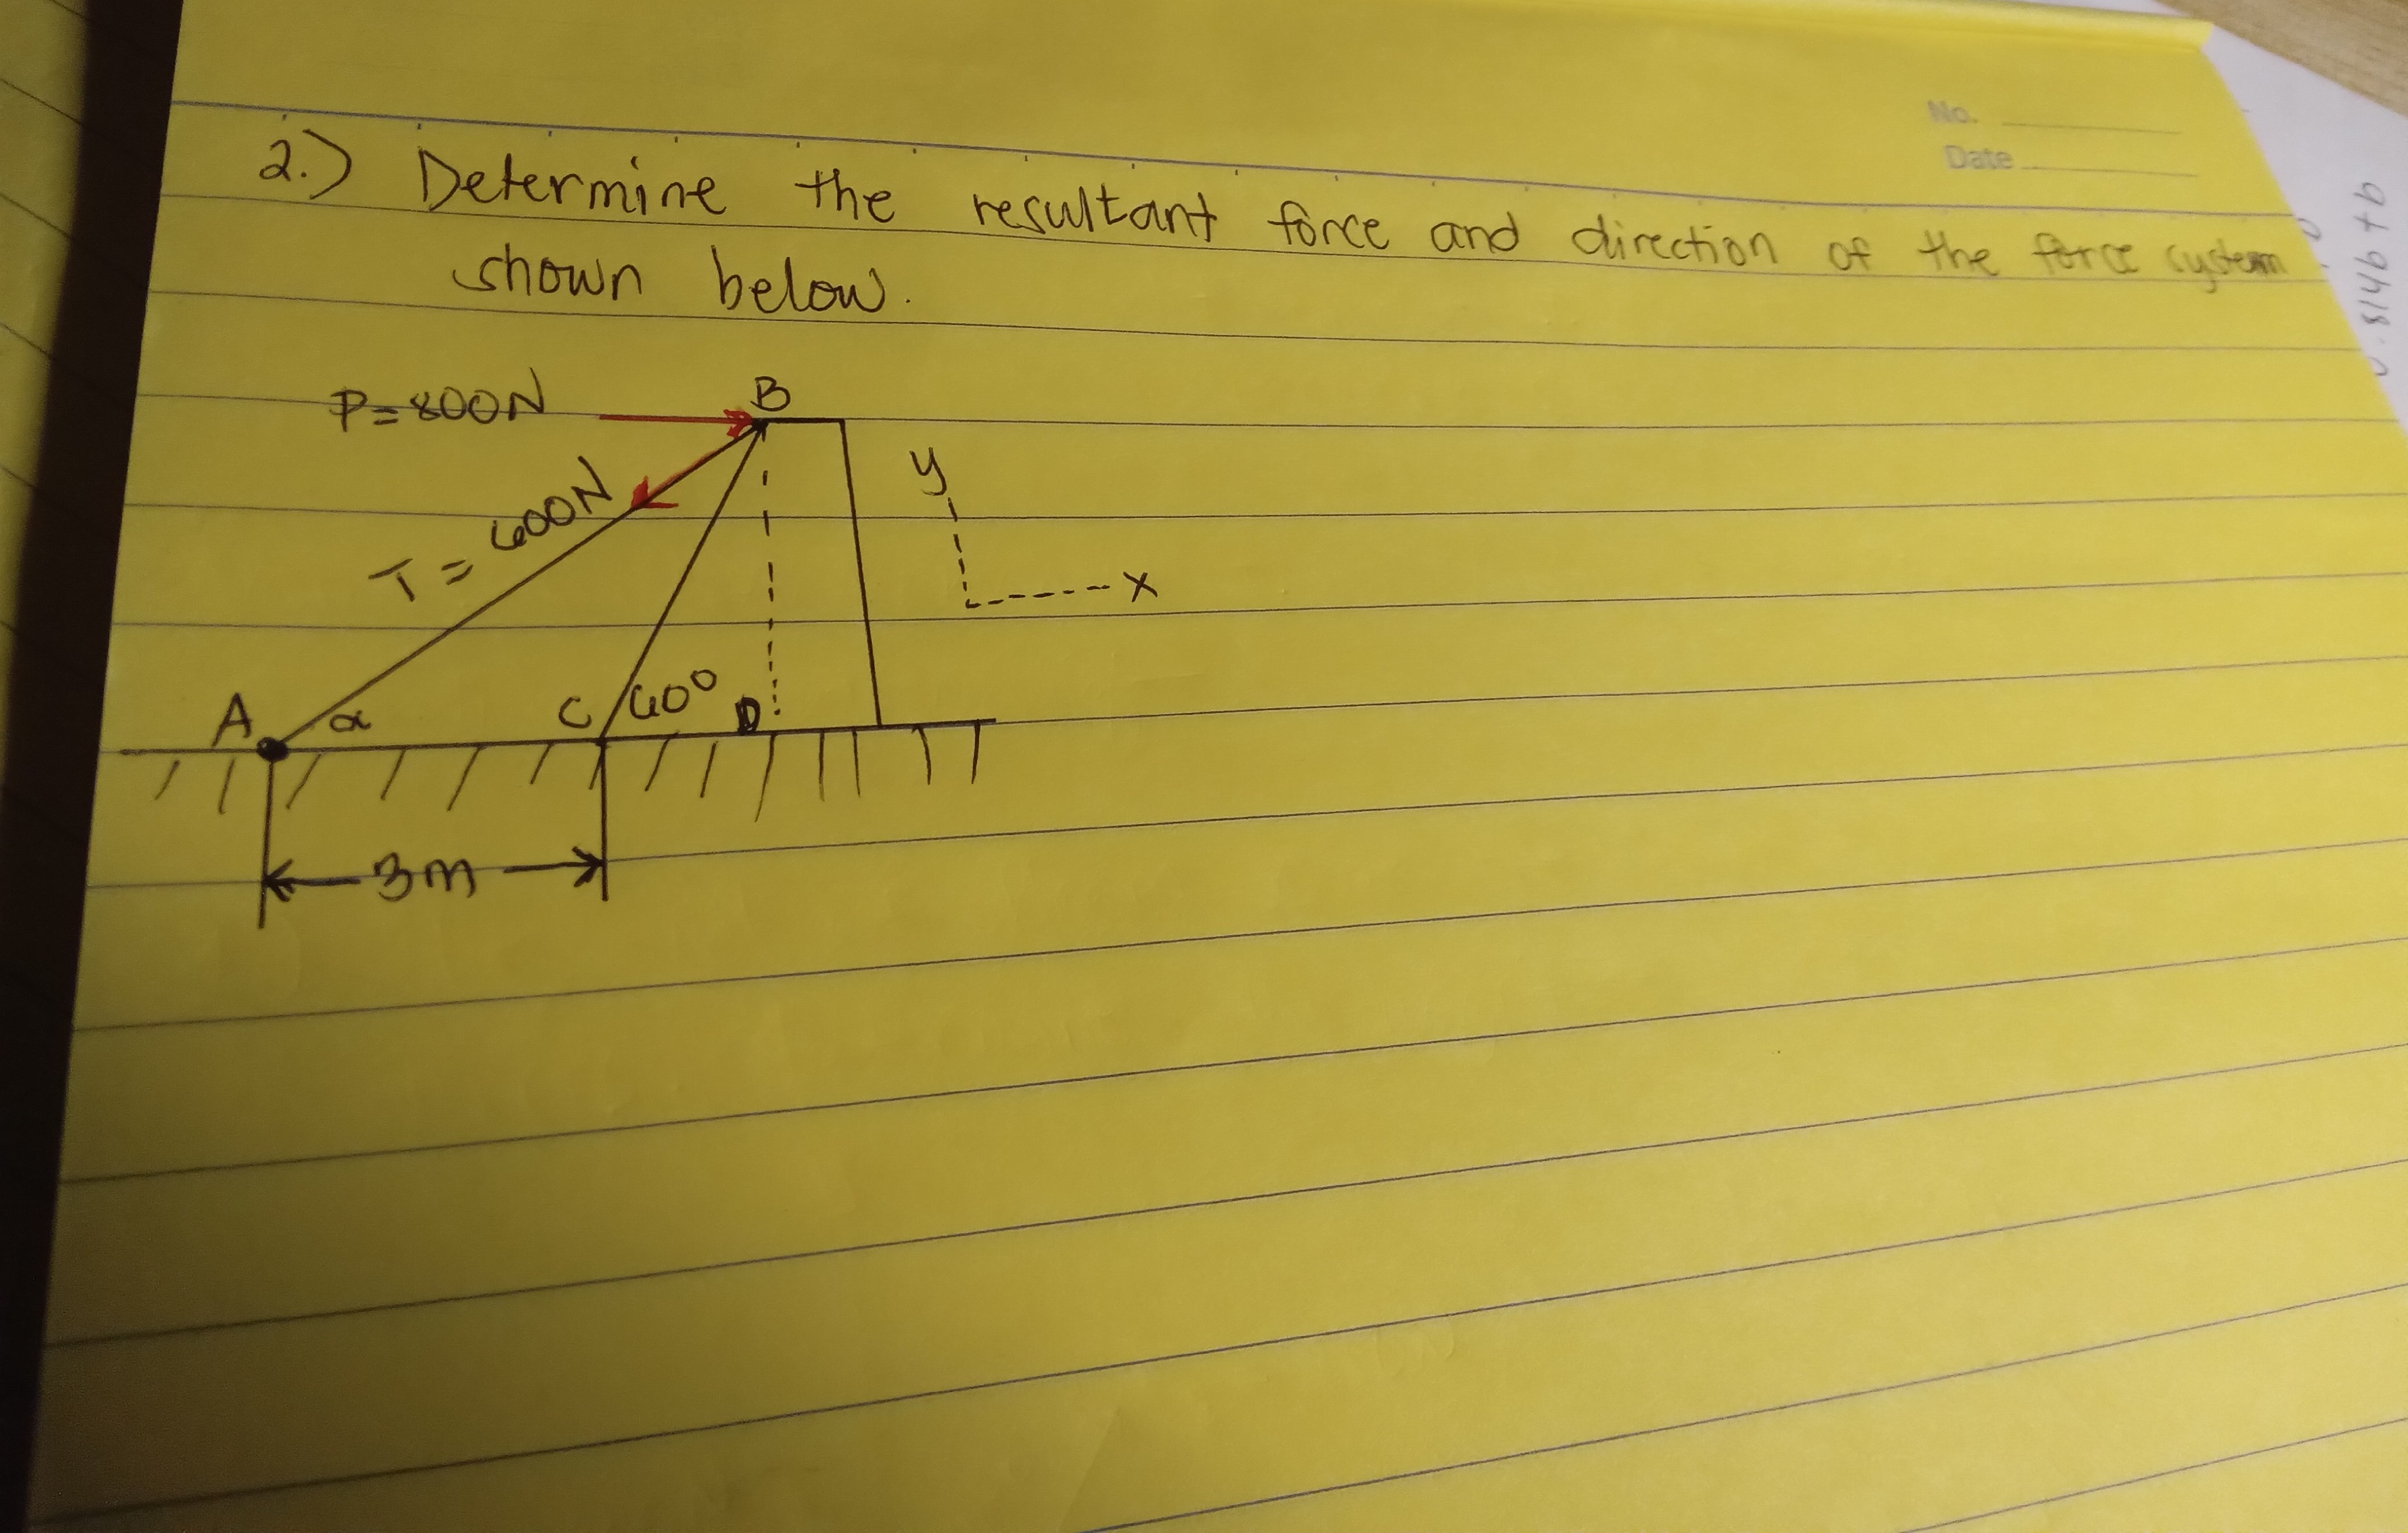 No.
Date
2.) Determine the resultant force and direction of the force system
shown below.
P=800N
B
T = 600N
y
x
A
α
C
60°
D
3m